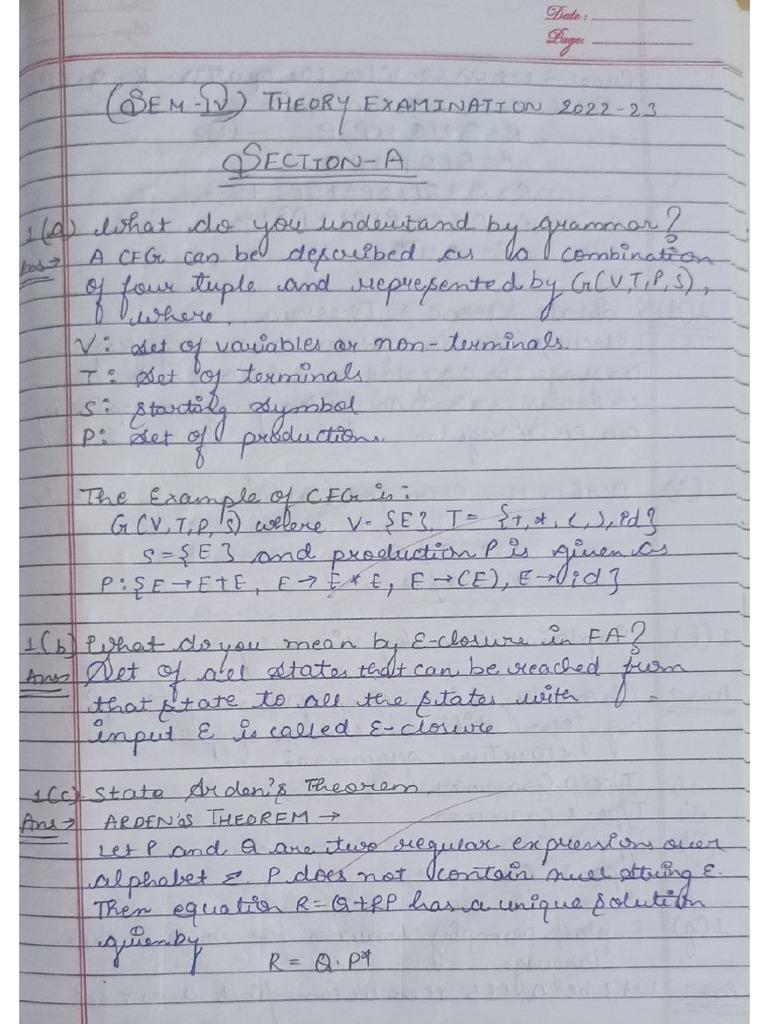 Date:
Page:
(SEM-IV) THEORY EXAMINATION 2022-23
SECTION-A
1(a) What do you understand by grammar?
Ans→ A CFG can be described as a combination
of four tuple and represented by G(V,T,P,S),
where,
V: Set of variables or non-terminals.
T: Set of terminals
S: Starting Symbol
P: Set of production.
The Example of CFG is:
G(V,T,P,S) where V= {E}, T= {+,*,(,),id}
S={E} and production P is given as
P:{E→E+E, E→ E*E, E→(E), E→id}
1(b) What do you mean by ε-closure in FA?
Ans→ Set of all states that can be reached form
that state to all the states with
input ε is called ε-closure
1(c) State Arden's Theorem.
Ans→ ARDEN'S THEOREM →
Let P and Q are two regular expression over
alphabet Σ P does not contain null string ε.
Then equation R=Q+RP has a unique solution
given by
R = Q.P*